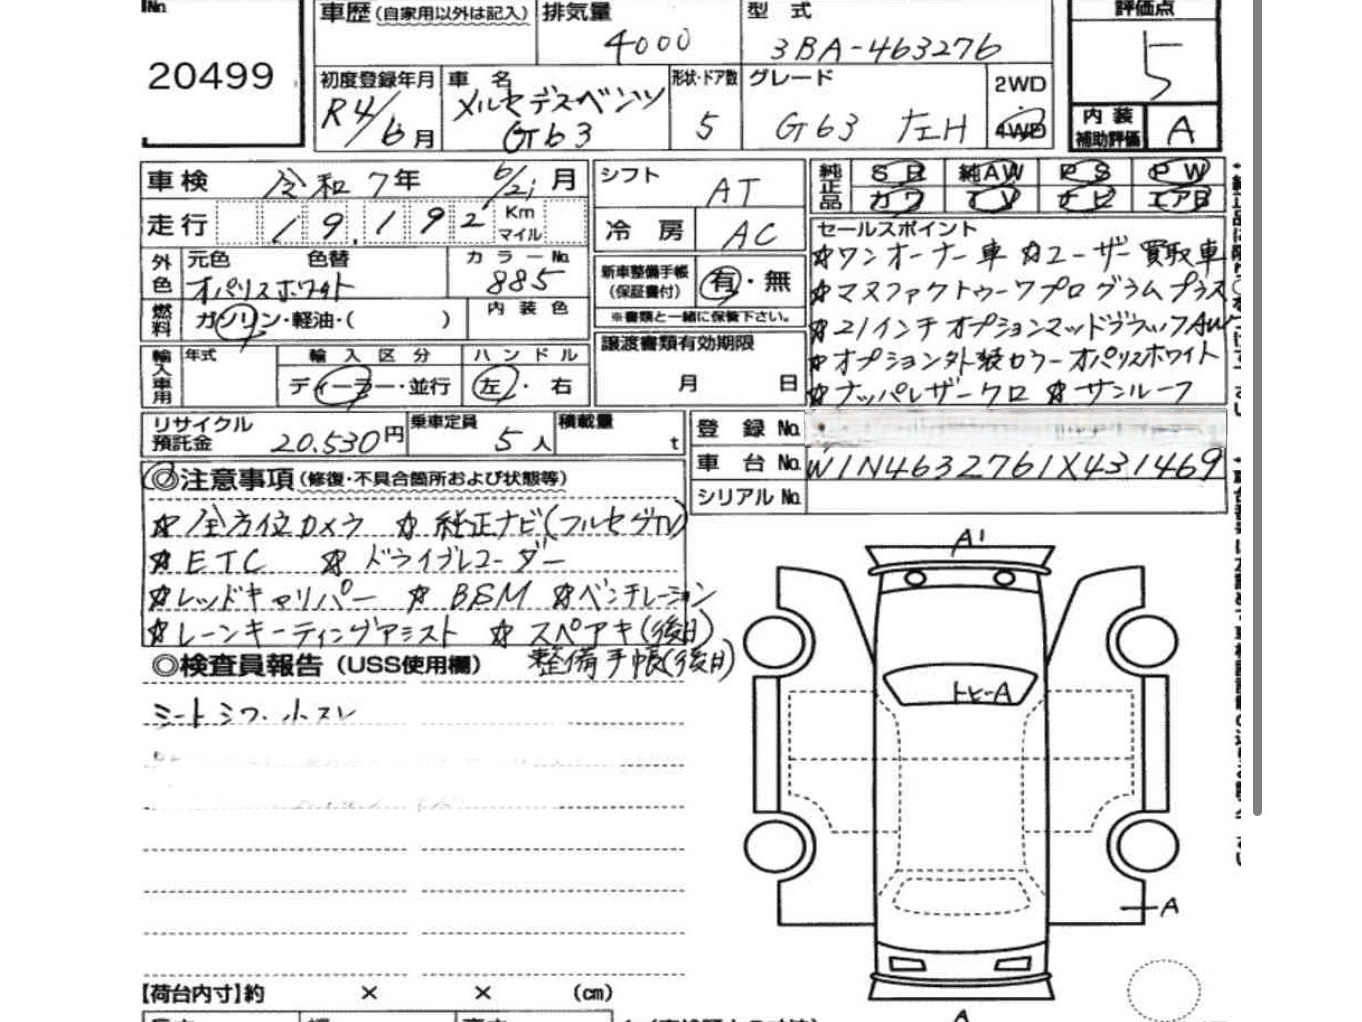 No.
20499
車歴(自家用以外は記入)
排気量
4000
型 式
3BA-463276
評価点
5
初度登録年月
R4/6月
車 名
メルセデスベンツ
G63
形状・ドア数
5
グレード
G63
2WD
4WD
内 装
補助評価
A
車検 令和7年 6/21月
走行 19.192 Km
マイル
シフト AT
冷 房 AC
純正品
SR 純AW PS PW
カワ TV ナビ エアB
セールスポイント
☆ワンオーナー車 ☆ユーザー買取車
☆マヌファクトゥーワプログラムプラス
☆21インチオプションマッドブラックAW
☆オプション外装カラーオパリスホワイト
☆ナッパレザークロ ☆サンルーフ
外色
元色 色替
オパリスホワイト
カラーNo.
885
燃料
ガソリン・軽油・( )
内装色
新車整備手帳
(保証書付)
有・無
※書類と一緒に保管下さい。
輸入車用
年式
輸入区分
ディーラー・並行
ハンドル
左・右
譲渡書類有効期限
月 日
リサイクル
預託金
20.530円
乗車定員
5人
積載量
t
登 録 No.
車 台 No. W1N4632761X431469
シリアル No.
◎注意事項(修復・不具合箇所および状態等)
☆全方位カメラ ☆純正ナビ(フルセグTV)
☆ETC ☆ドライブレコーダー
☆レッドキャリパー ☆BSM ☆ベンチレーション
☆レーンキーティングアシスト ☆スペアキ(後日)
整備手帳(後日)
◎検査員報告(USS使用欄)
シートシワ・小スレ
A1
トヒーA
A
A
【荷台内寸】約 × × (cm)